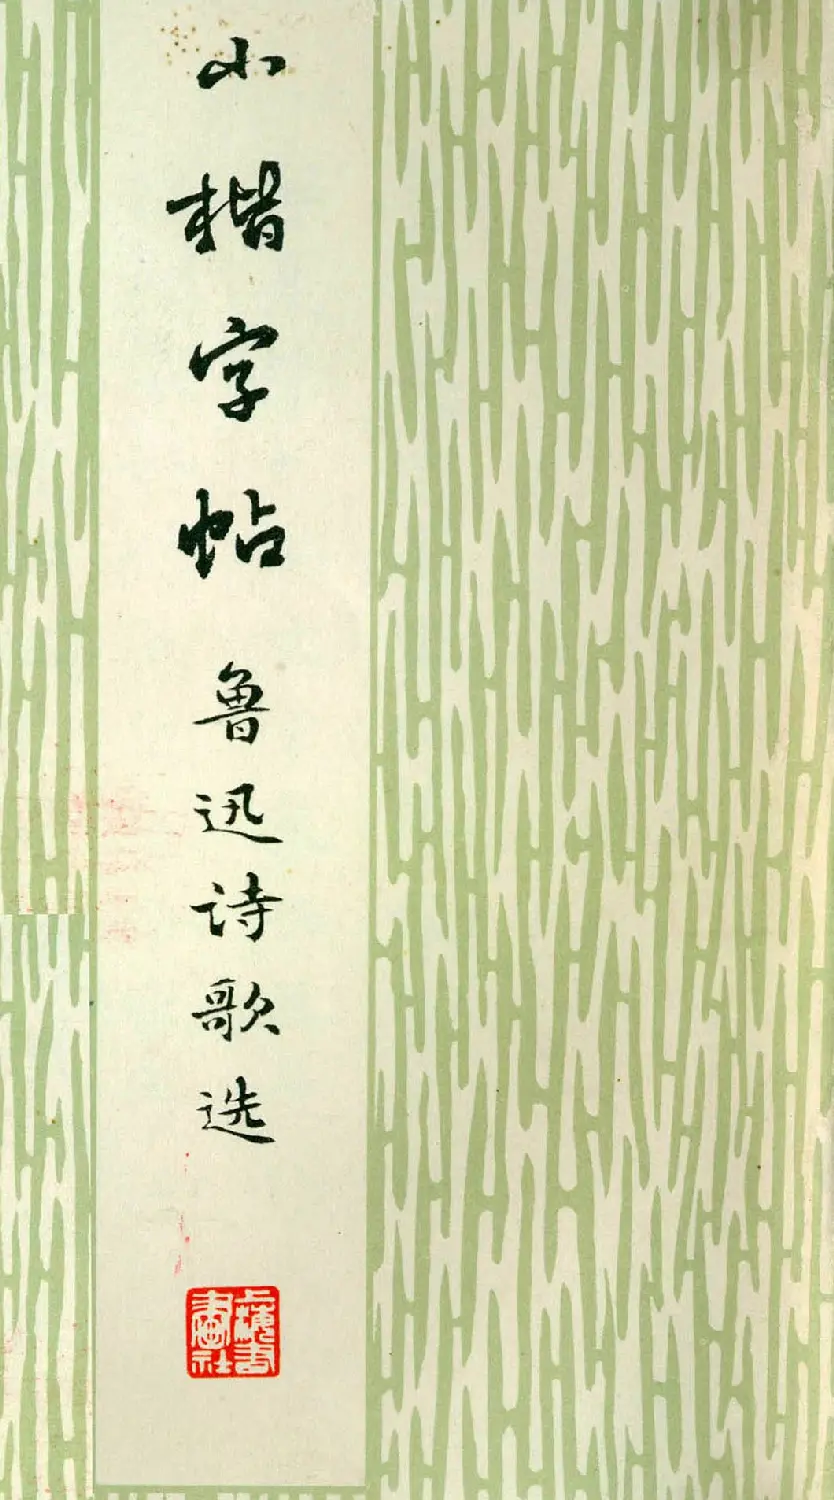 小楷字帖 鲁迅诗歌选
上海书画社